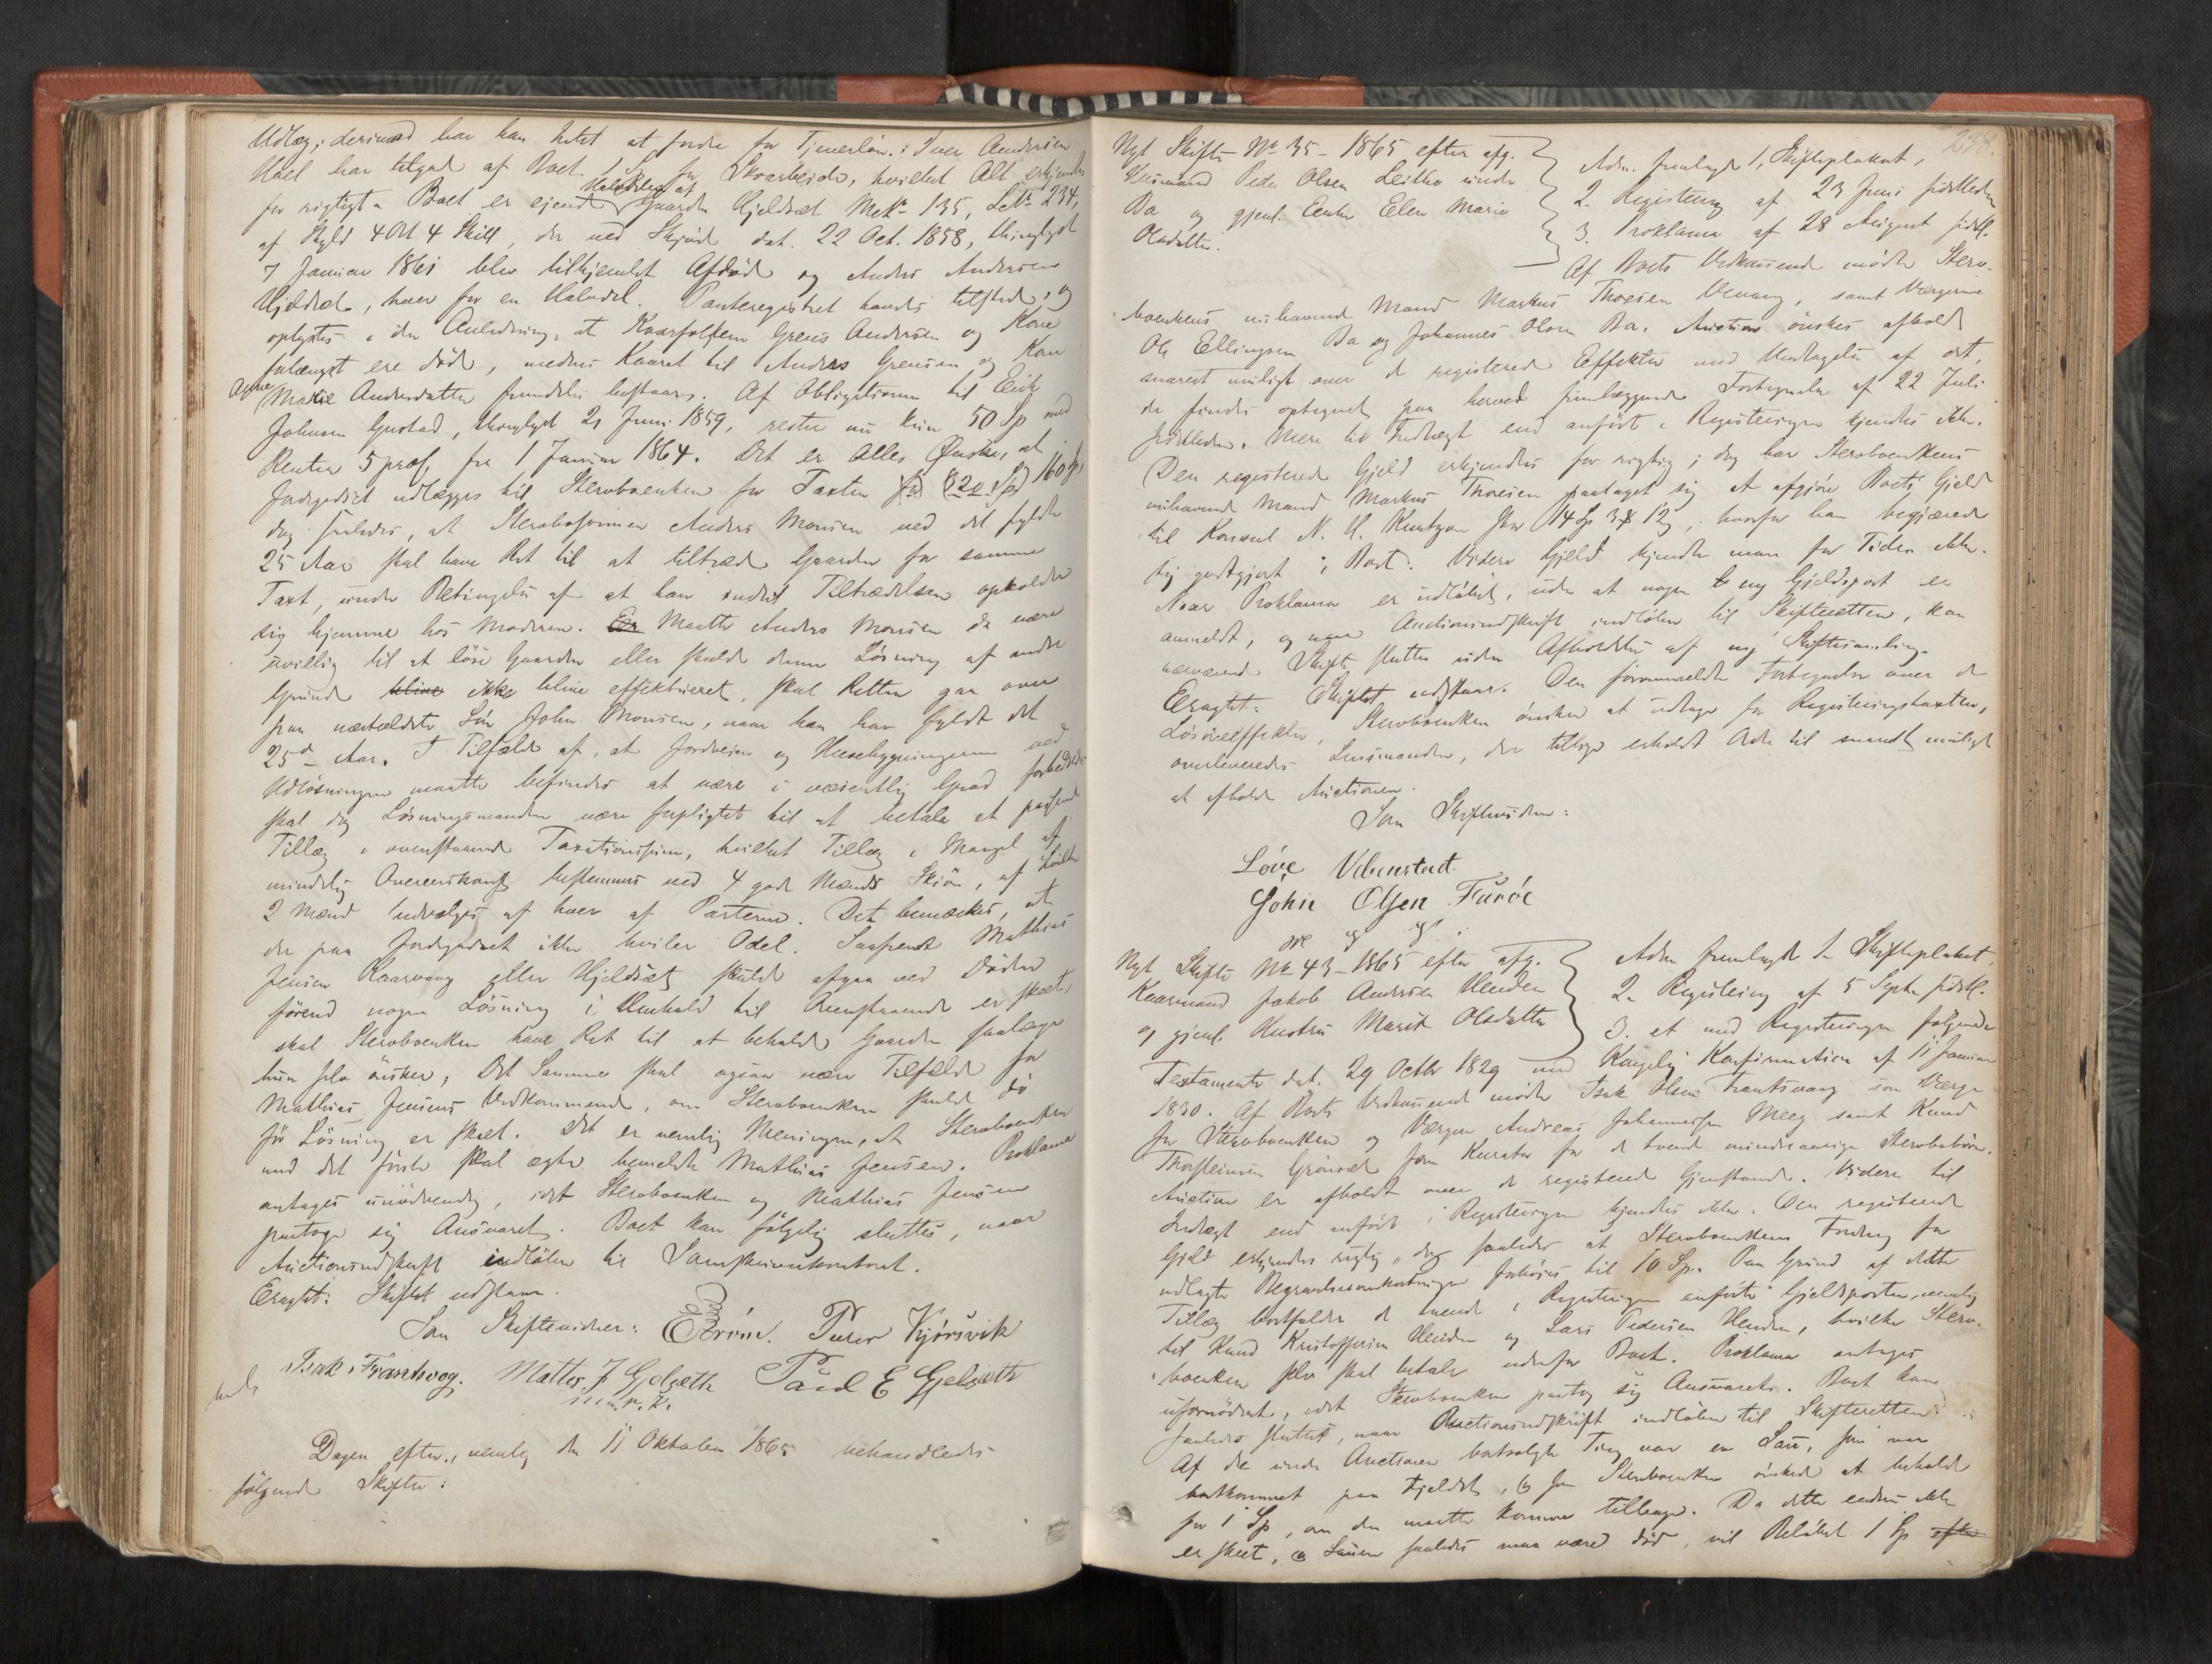 Udlæg; derimod har han Intet at fordre for Tjenerløn. Iver Andersen
Hoel har tilgode af Boet for Skoarbeide, hvilket Alt erkjendes
for rigtigt. Boet er eiende Halvdelen af Gaarden Hjeldsæt Mtr No 135, Lb No 234,
af Skyld 4 Ort 4 Skill, der ved Skjøde dat. 22 Oct. 1858, thinglyst
7 Januar 1861 blev tilhjemlet Afdøde og Anders Andersen
Hjeldsæt, hver for en Halvdel. Panteregistret havdes tilstede, og
oplystes i den Anledning, at Kaarfolkene Greus Andersen og Kone
forlængst ere døde, medens Kaaret til Anders Greusen og Kone
Marie Andersdatter fremdeles bestaar. Af Obligationen til Erik
Johnsen Gustad, thinglyst 21 Juni 1859, rester nu kun 50 Sp med
Renter 5 pros. fra 1 Januar 1864. Det er Alles Ønske, at
Jordegodset udlægges til Sterboenken for Taxten 160 Sp,
dog saaledes, at Sterbosønnen Anders Monsen ved det fyldte
25 Aar skal have Ret til at tiltræde Gaarden for samme
Taxt, under Betingelse af at han indtil Tiltrædelsen opholder
sig hjemme hos Moderen. Maatte Anders Monsen da være
uvillig til at løse Gaarden eller skulde denne Løsning af andre
Grunde blive ikke blive effektueret, skal Retten gaa over
paa næstældste Søn John Monsen, naar han har fyldt det
25de Aar. I Tilfælde af, at Jordveien og Husebygningerne ved
Udløsningen maatte befindes at være i væsentlig Grad forbedrede
skal dog Løsningsmanden være forpligtet til at betale et passende
Tillæg i ovenstaaende Taxationssum, hvilket Tillæg i Mangel af
mindelig Overenskomst bestemmes ved 4 gode Mænds Skjøn, af hvilke
2 Mænd udvælges af hver af Parterne. Det bemærkes, at
der paa Jordegodset ikke hviler Odel. Saafremt Mathias
Jensen Kaarvaag eller Hjeldsæt skulde afgaa ved Døden
førend nogen Løsning i Henhold til Ovenstaaende er skeet,
skal Sterboenken have Ret til at beholde Gaarden saalænge
hun selv ønsker, Det Samme skal ogsaa være Tilfældet for
Mathias Jensens Vedkommende, om Sterboenken skulde dø
før Løsning er skeet. Det er nemlig Meningen, at Sterboenken
med det første skal ægte bemeldte Mathias Jensen. Proklama
antages unødvendig, idet Sterboenken og Mathias Jensen
paatage sig Ansvaret. Boet kan følgelig sluttes, naar
Auctionsudskrift indløber til Sorenskriverkontoret.
Eragtet: Skiftet udstaar.
Som Skiftevidner: Peder Kjørsvik
Isak Frantsvog. Mattis J Gjelsæth Paul E Gjelsæth
m. p. k.
Dagen efter, nemlig den 11 Oktober 1865 behandledes
følgende Skifter:
Nyt Skifte No 35 - 1865 efter afg.
Huusmand Peder Olsen Leithe under
Bæ og gjenl. Enke Elen Marie
Olsdatter.
Adm. fremlagde 1, Skifteplakat,
2. Registrering af 23 Juni sidstleden
3. Proklama af 28 August sidstl.
Af Boets Vedkommende mødte Sterv-
boenkens nuhavende Mand Markus Thoresen Vevang, samt Værgerne
Ole Ellingsen Bæ og Johannes Olsen Bæ. Auction ønskes afholdt
snarest muligt over de registrerede Effekter med Undtagelse af det,
der findes optegnet paa herved fremlæggende Fortegnelse af 22 Juli
sidstleden. Mere til Indtægt end anført i Registreringen kjendtes ikke.
Den registrerede Gjeld erkjendtes for rigtig; dog har Sterboenkens
nuhavende Mand Markus Thoresen paataget sig at afgjøre Boets Gjeld
til Konsul N. H. Knudtzon stor 14 Sp 3 # 12 s, hvorfor han begjærede
sig godtgjort i Boet. Videre Gjeld kjendte man for Tiden ikke.
Naar Proklama er udløbet, uden at nogen ny Gjeldspost er
anmeldt, og naar Auctionsudskrift indløber til Skifteretten, kan
nærværende Skifte sluttes uden Afholdelse af ny Skiftesamling.
Eragtet: Skiftet udstaar. Den forommeldte Fortegnelse over de
Løsøreeffekter, Sterboenken ønsker at udtage for Registreringstaxten,
overleveredes Lensmanden, der tillige erholdt Ordre til snarest muligt
at afholde Auctionen.
Som Skiftevidner:
Love Vebenstad.
John Olsen Farøe
Nyt Skifte No 43 - 1865 efter afg.
Kaarmand Jakob Andersen Henden
og gjenl. Hustru Marit Olsdatter
Adm fremlagde 1. Skifteplakat,
2. Registrering af 5 Septbr sidstl.
3. et med Registreringen følgende
Testamente dat. 29 Octbr 1829 med Kongelig Konfirmation af 11 Januar
1830. Af Boets Vedkommende mødte Isak Olsen Frantsvaag som Værge
for Sterboenken og Værgen Andreas Johannessen Meeg samt Knud
Thorsteinsen Grønset som Kurator for de tvende mindreaarige Sterbobørn.
Auction er afholdt over de registrerede Gjenstande. Videre til
Indtægt end anført i Registreringen kjendtes ikke. Den registrerede
Gjeld erkjendes rigtig, dog saaledes at Sterboenkens Fordring for
udlagte Begravelsesomkostninger forhøies til 10 Sp. Paa Grund af dette
Tillæg bortfalder de tvende i Registreringen anførte Gjeldsposter, nemlig
til Knud Kristoffersen Henden og Lars Pedersen Henden, hvilke Sterv-
boenken selv skal betale udenfor Boet. Proklama antages
ufornødent, idet Sterboenken paatog sig Ansvaret. Boet kan
saaledes sluttes, naar Auctionsudskrift indløber til Skifteretten.
Af de under Auctionen bortsolgte Ting var en Sau, som var
bortkommet paa Fjeldet, og som Sterboenken ønskede at beholde
for 1 Sp, om den maatte komme tilbage. Da dette endnu ikke
er skeet, og Sauen saaledes maa være død, vil Beløbet 1 Sp efter